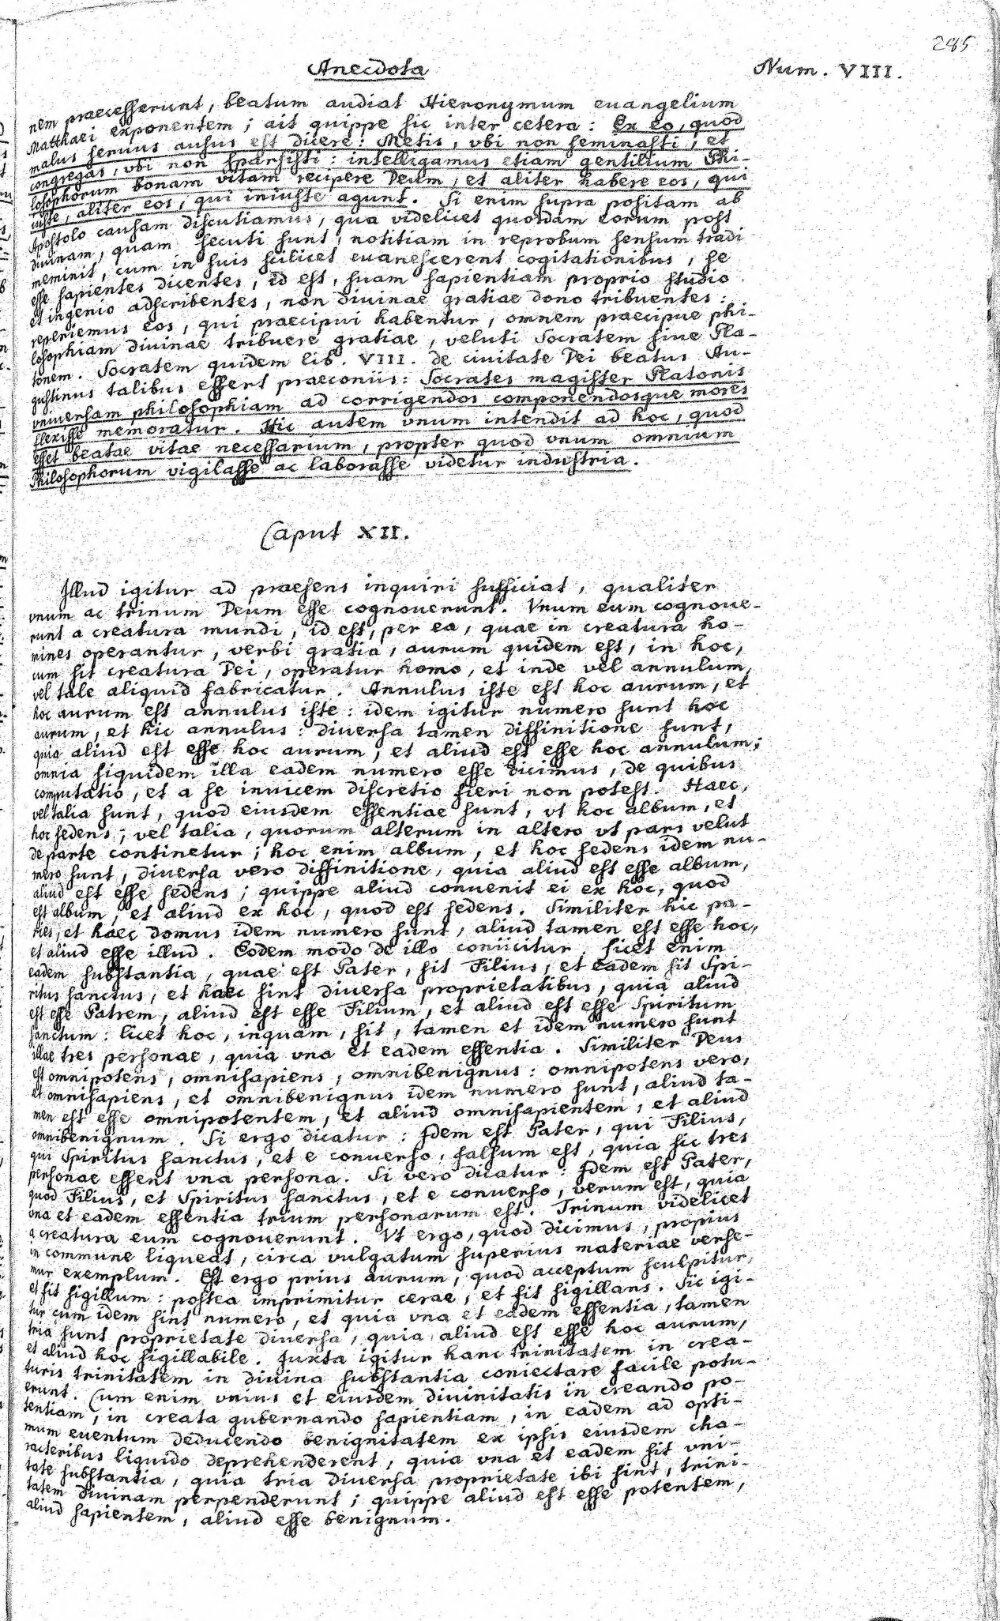 285
Anecdota Num. VIII.
nem praecesserunt, beatum audiat Hieronymum euangelium
Matthaei exponentem; ait quippe sic inter cetera: Ex eo, quod
malus seruus ausus est dicere: Metis, vbi non seminasti, et
congregas, vbi non sparsisti: intelligamus etiam gentilium Phi-
losophorum bonam vitam recipere Deum, et aliter habere eos, qui
iuste, aliter eos, qui iniuste agunt. Si enim supra positam ab
Apostolo causam discutiamus, qua videlicet quosdam eorum post
diuinam, quam secuti sunt, notitiam in reprobum sensum tradi
meminit, cum in suis scilicet euanescerent cogitationibus, se
esse sapientes dicentes, id est, suam sapientiam proprio studio
et ingenio adscribentes, non diuinae gratiae dono tribuentes:
reperiemus eos, qui praecipui habentur, omnem praecipue phi-
losophiam diuinae tribuere gratiae, veluti Socratem siue Pla-
tonem. Socratem quidem lib. VIII. de ciuitate Dei beatus Au-
gustinus talibus effert praeconiis: Socrates magister Platonis
vniuersam philosophiam ad corrigendos componendosque mores
flexisse memoratur. Hic autem vnum intendit ad hoc, quod
esset beatae vitae necessarium, propter quod vnum omnium
Philosophorum vigilasse ac laborasse videtur industria.
Caput XII.
Illud igitur ad praesens inquiri sufficiat, qualiter
vnum ac trinum Deum esse cognouerunt. Vnum eum cognoue-
runt a creatura mundi, id est, per ea, quae in creatura ho-
mines operantur, verbi gratia, aurum quidem est, in hoc,
cum sit creatura Dei, operatur homo, et inde vel annulum,
vel tale aliquid fabricatur. Annulus iste est hoc aurum, et
hoc aurum est annulus iste: idem igitur numero sunt hoc
aurum, et hic annulus: diuersa tamen diffinitione sunt,
quia aliud est esse hoc aurum, et aliud est esse hoc annulum;
omnia siquidem illa eadem numero esse dicimus, de quibus
computatio, et a se inuicem discretio fieri non potest. Haec,
vel talia sunt, quod eiusdem essentiae sunt, vt hoc album, et
hoc sedens; vel talia, quorum alterum in altero vt pars velut
de parte continetur; hoc enim album, et hoc sedens idem nu-
mero sunt, diuersa vero diffinitione, quia aliud est esse album,
aliud est esse sedens; quippe aliud conuenit ei ex hoc, quod
est album, et aliud ex hoc, quod est sedens. Similiter hic pa-
ries, et haec domus idem numero sunt, aliud tamen est esse hoc,
et aliud esse illud. Eodem modo de illo coniicitur, licet enim
eadem substantia, quae est Pater, sit Filius, et eadem sit Spi-
ritus sanctus, et haec sint diuersa proprietatibus, quia aliud
est esse Patrem, aliud est esse Filium, et aliud est esse Spiritum
sanctum: licet hoc, inquam, sit, tamen et idem numero sunt
illae tres personae, quia vna et eadem essentia. Similiter Deus
est omnipotens, omnisapiens, omnibenignus: omnipotens vero,
et omnisapiens, et omnibenignus idem numero sunt, aliud ta-
men est esse omnipotentem, et aliud omnisapientem, et aliud
omnibenignum. Si ergo dicatur: Idem est Pater, qui Filius,
qui Spiritus sanctus, et e conuerso, falsum est, quia sic tres
personae essent vna persona. Si vero dicatur: Idem est Pater,
quod Filius, et Spiritus sanctus, et e conuerso, verum est, quia
vna et eadem essentia trium personarum est. Trinum videlicet
a creatura eum cognouerunt. Vt ergo, quod dicimus, propius
in commune liqueat, circa vulgatum superius materiae verse-
mur exemplum. Est ergo prius aurum, quod acceptum sculpitur,
et sit sigillum: postea imprimitur cerae, et sit sigillans. Sic igi-
tur cum idem sint numero, et quia vna et eadem essentia, tamen
tria sunt proprietate diuersa, quia aliud est esse hoc aurum,
et aliud hoc sigillabile. Iuxta igitur hanc trinitatem in crea-
turis trinitatem in diuina substantia coniectare facile potu-
erunt. Cum enim vnius et eiusdem diuinitatis in creando po-
tentiam, in creata gubernando sapientiam, in eadem ad opti-
mum euentum deducendo benignitatem ex ipsis eiusdem cha-
racteribus liquido deprehenderent, quia vna et eadem sit vni-
tate substantia, quia tria diuersa proprietate ibi sint, trini-
tatem diuinam perpenderunt; quippe aliud est esse potentem,
aliud sapientem, aliud esse benignum.